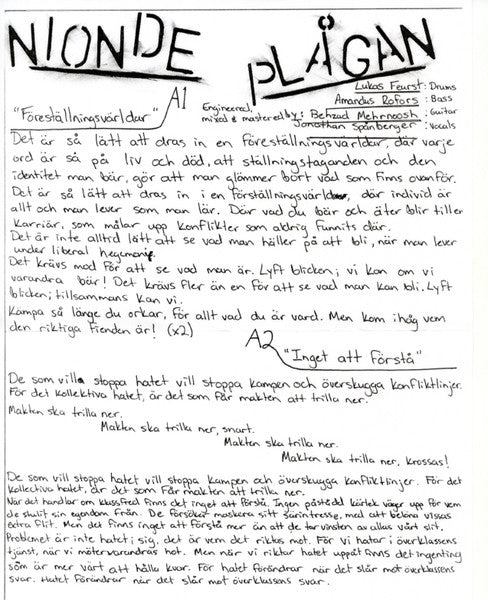 NIONDE PLÅGAN
Lukas Feurst : Drums
Amandus Rofors : Bass
Engineered, mixed & mastered by: Behzad Mehrnoosh : Guitar
Jonathan Spånberger : Vocals
A1
"Föreställningsvärldar"
Det är så lätt att dras in en föreställningsvärldar, där varje
ord är så på liv och död, att ställningstaganden och den
identitet man bär, gör att man glömmer bort vad som finns ovanför.
Det är så lätt att dras in i en förställningsvärld, där individ är
allt och man lever som man lär. Där vad du bär och äter blir till er
Karriär, som målar upp konflikter som aldrig funnits där.
Det är inte alltid lätt att se vad man håller på att bli, när man lever
under liberal hegemoni.
Det krävs mod för att se vad man är. Lyft blicken; vi kan om vi
varandra bär! Det krävs fler än en för att se vad man kan bli. Lyft
blicken; tillsammans kan vi.
Kämpa så länge du orkar, för allt vad du är värd. Men kom ihåg vem
den riktiga fienden är! (x2)
A2
"Inget att förstå"
De som villa stoppa hatet vill stoppa kampen och överskugga konfliktlinjer.
För det kollektiva hatet, är det som får makten att trilla ner.
Makten ska trilla ner.
Makten ska trilla ner, snart.
Makten ska trilla ner.
Makten ska trilla ner, krossas!
De som vill stoppa hatet vill stoppa kampen och överskugga konfliktlinjer. För det
kollectiva hatet, är det som får makten att trilla ner.
När det handlar om klassfred finns det inget att förstå. Ingen påstådd kärlek väger upp för vem
de stulit sin egendom från. De försöker maskera sitt särintresse, med att belöna vissas
extra flit. Men det finns inget att förstå mer än att de tar vinsten av allas vårt slit.
Problemet är inte hatet i sig, det är vem det riktas mot. För vi hatar i överklassens
tjänst, när vi möter varandras hot. Men när vi riktar hatet uppåt finns det ingenting
som är mer värt att hålla kvar. För hatet förändrar när det slår mot överklassens
svar. Hatet förändrar när det slår mot överklassens svar.